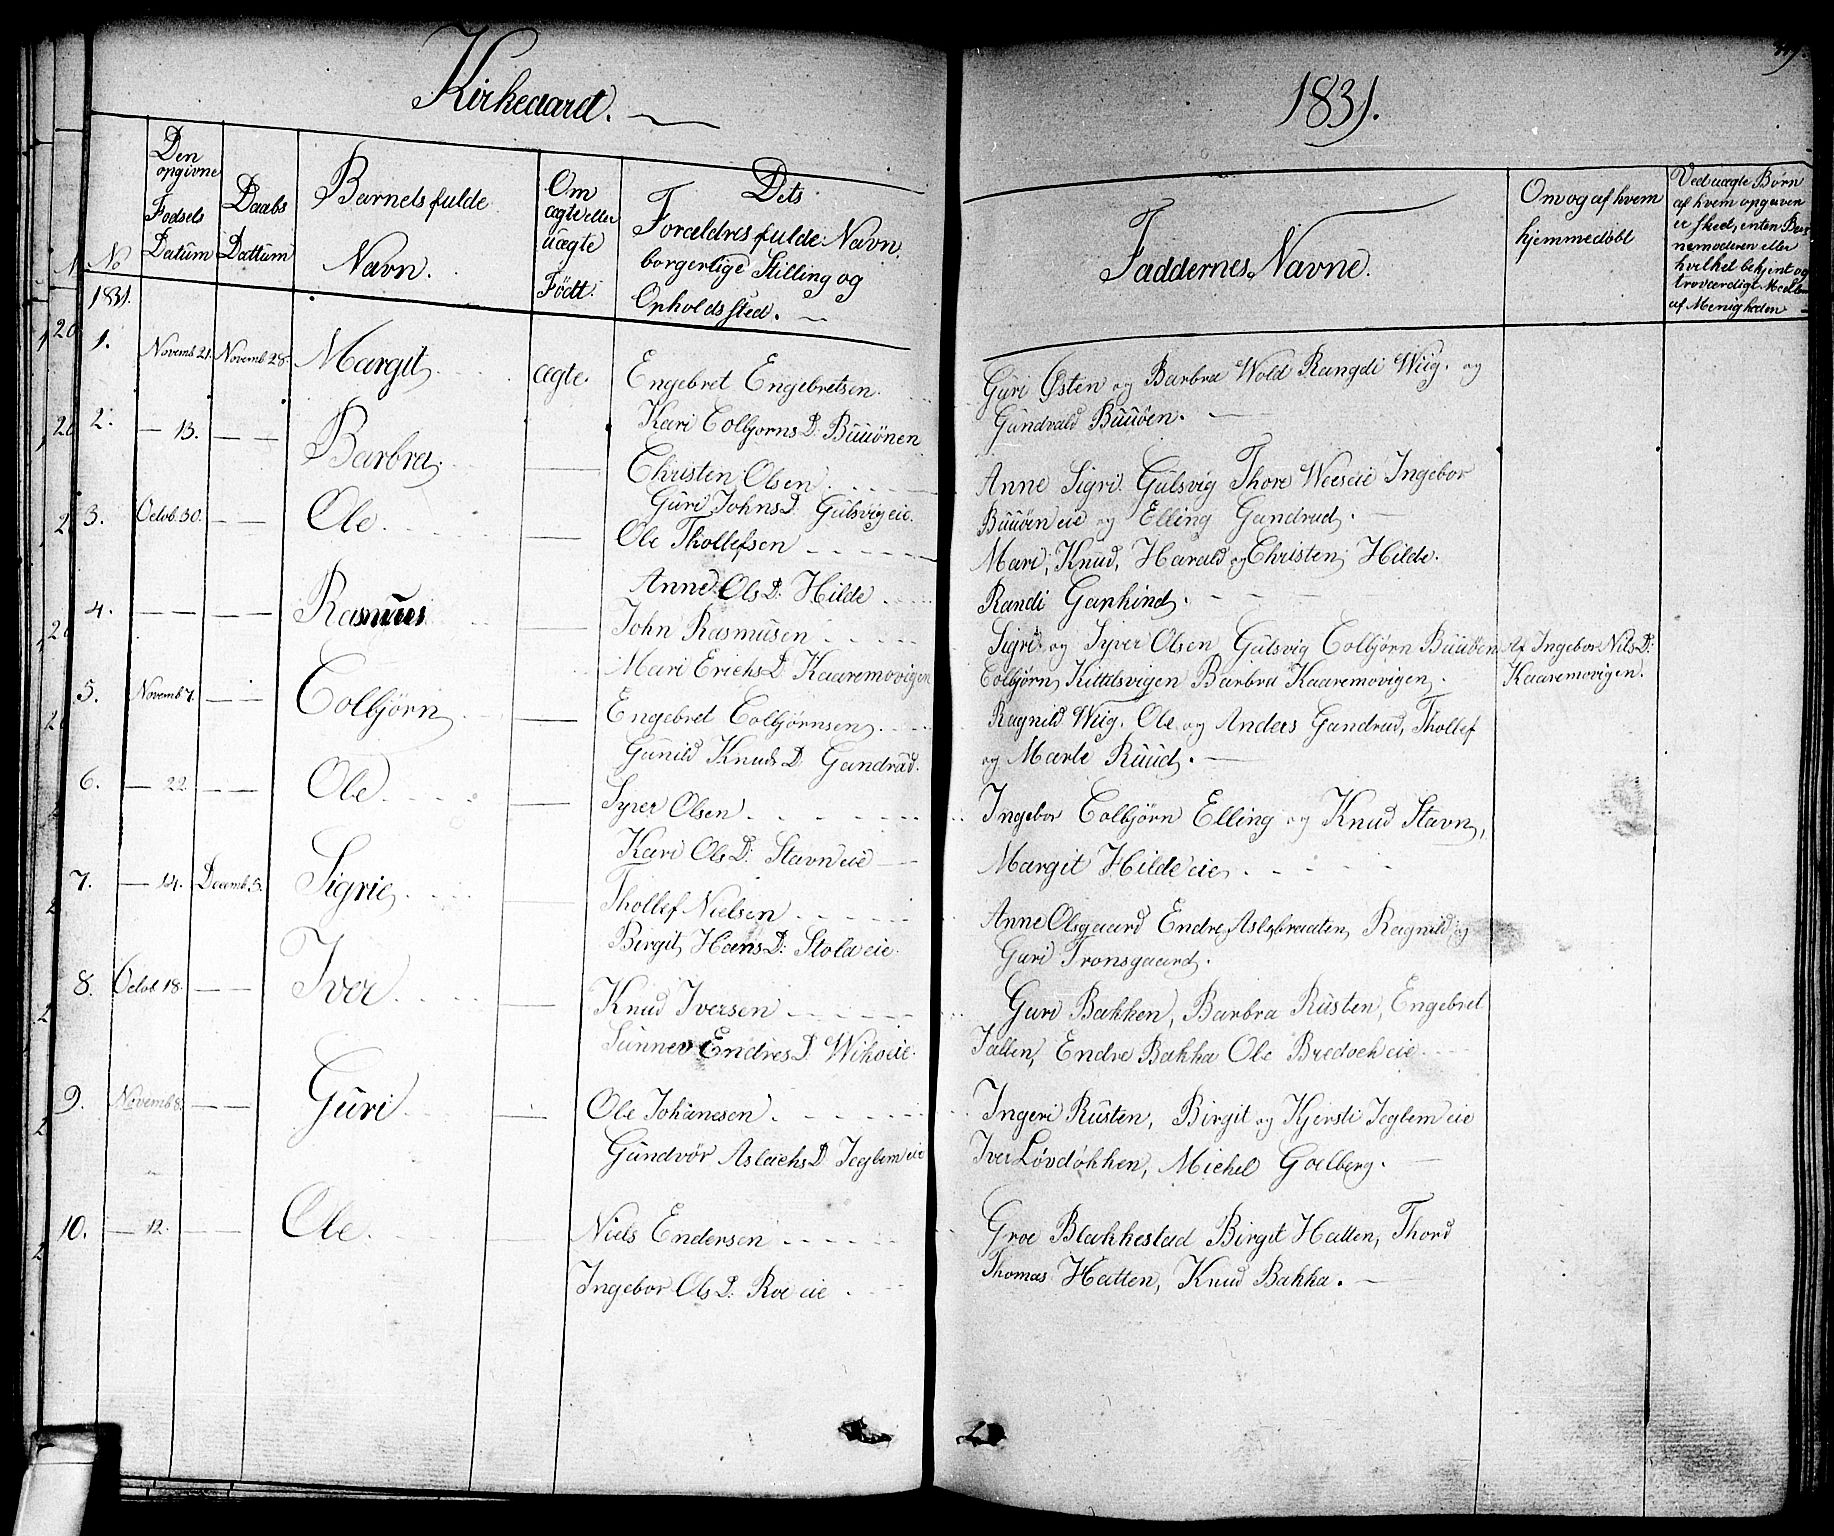 Kirkegaard.
1831.
Den opgivne Fødsels Datum
Daabs Dattum
Barnets fulde Navn.
Om ægte eller uægte Født.
Dets Forældres fulde Navn, borgerlige Stilling og Opholdssted.
Faddernes Navne.
Om og af hvem hjemmedøbt
Ved uægte Børn af hvem opgaven er skeed, enten Barnemoderen eller hvilket bekjent og troværdigt Medlem af Menigheden
No
1831.
1. Novemb 21. Novemb 28. Margit ægte. Engebret Engebretsen
Kari Colbjorns D: Buuönen
Guri Østen og Barbra Wold Rangdi Wiig. og
Gundvald Buuöen.
2. — 13. — — Barbra — Christen Olsen
Guri Johns D. Gulsvig eie.
Anne Sigri Gulsvig Thore Weeseie Ingebor
Buuöen eie og Elling Gandrud.
3. Octob. 30. — — Ole — Ole Thollefsen
Anne Ols D: Hilde
Mari, Knud, Harald og Christen Hilde.
Randi Garhind.
4. — — — — Rasmus — John Rasmusen
Mari Erichs D Kaaremovigen
Sigri og Syver Olsen Gulsvig Colbjørn Buuöen
Colbjørn Kittelsvigen Barbra Kaaremovigen.
Af Ingebor Nils D:
Kaaremovigen.
5. Novemb 7. — — Colbjörn — Engebret Colbjørnsen
Gunild Knuds D. Gandrud.
Ragnild Wiig. Ole og Anders Gandrud, Thollef
og Marte Ruud.
6. — 22 — — Ole — Syver Olsen
Kari Ols D: Stavn eie
Ingebor Colbjörn Elling og Knud Stavn,
Margit Hilde eie
7. — 14. Decemb. 5. Sigrie — Thollef Nielsen
Birgit Hans D: Stola eie.
Anne Olsgaard Endre Aslesbraaten Ragnild og
Guri Tronsgaard.
8. Octob 18. — — Iver — Knud Iversen
Sunnev Endres D.
Guri Bakken, Barbra Rusten, Engebret
Endre Bakka Ole Bredvek eie
9. Novemb 8. — — Guri — Ole Johanesen
Gundvör Aslachs D Jeglem eie
Ingeri Rusten, Birgit og Kjersti Jeglem eie
Iver Lövdokken, Michel Golberg.
10. — 12. — — Ole — Niels Endersen
Ingebor Ols D: Roe eie
Groe Blakkestad Birgit Hatten, Thord
Thomas Hatten, Knud Bakka.